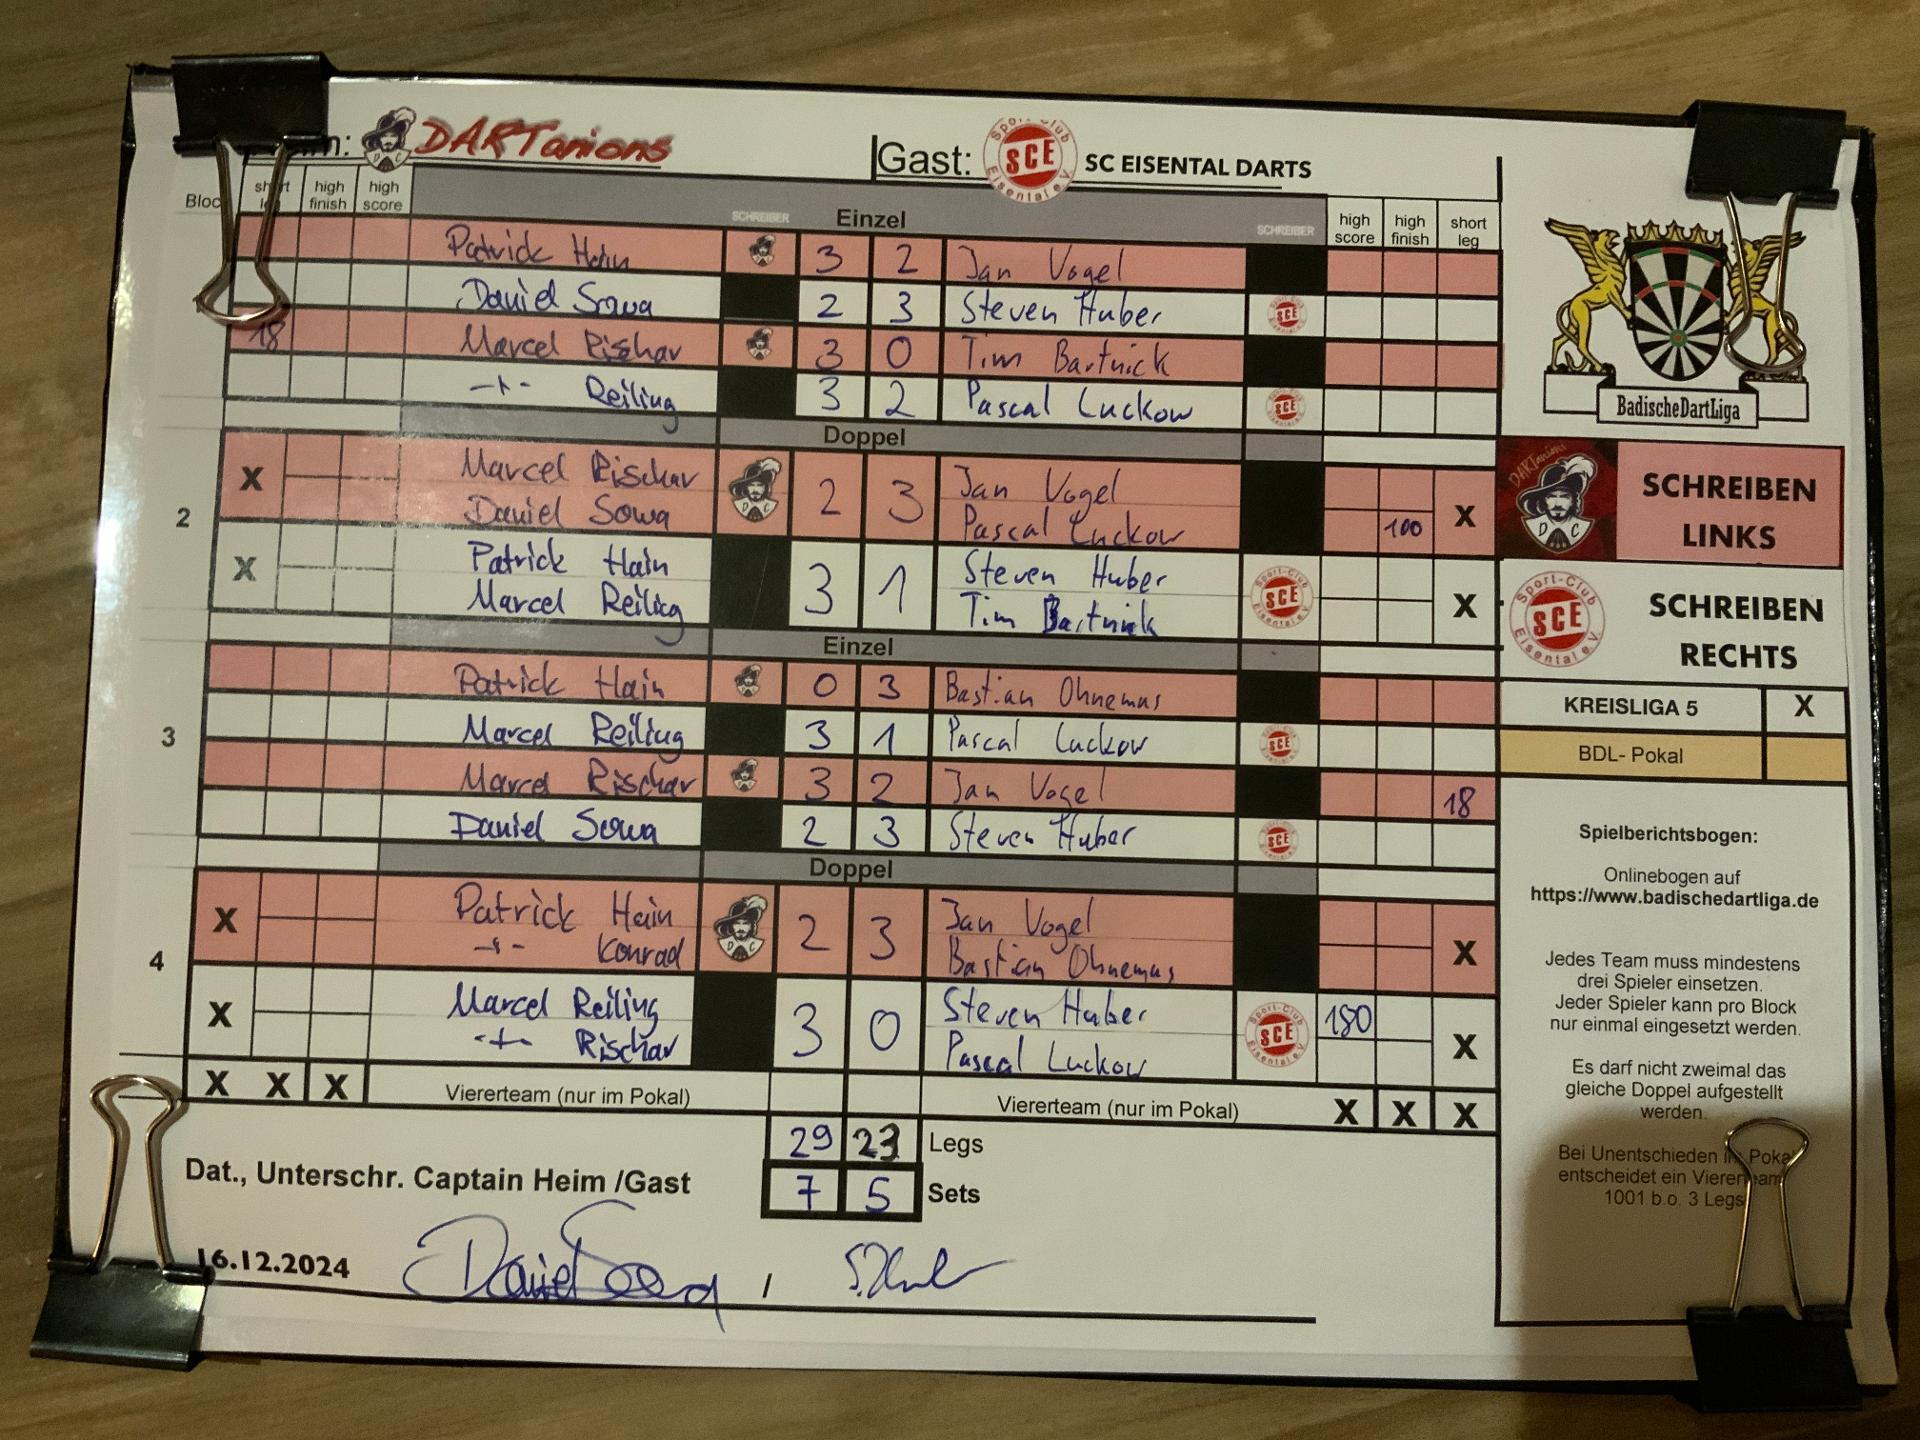 DARTanions Gast: SCE SC EISENTAL DARTS
high finish high score SCHREIBER Einzel SCHREIBER high score high finish short leg
Patrick Hain 3 2 Jan Vogel
Daniel Sowa 2 3 Steven Huber SCE
18 Marcel Rischar 3 0 Tim Bartnick
-"- Reiling 3 2 Pascal Luckow SCE
BadischeDartLiga
Doppel
2
X Marcel Rischar 2 3 Jan Vogel X
Daniel Sowa Pascal Luckow 100
X Patrick Hain 3 1 Steven Huber SCE X
Marcel Reiling Tim Bartnick
Einzel
3
Patrick Hain 0 3 Bastian Ohnemus
Marcel Reiling 3 1 Pascal Luckow SCE
Marcel Rischar 3 2 Jan Vogel 18
Daniel Sowa 2 3 Steven Huber SCE
Doppel
4
X Patrick Hain 2 3 Jan Vogel X
-"- Konrad Bastian Ohnemus
X Marcel Reiling 3 0 Steven Huber SCE 180 X
-"- Rischar Pascal Luckow
X X X Viererteam (nur im Pokal) Viererteam (nur im Pokal) X X X
29 23 Legs
7 5 Sets
Dat., Unterschr. Captain Heim /Gast
16.12.2024 /
DARTanions
D C
SCHREIBEN
LINKS
Sport-Club
SCE
Eisental e.V.
SCHREIBEN
RECHTS
KREISLIGA 5 X
BDL- Pokal
Spielberichtsbogen:
Onlinebogen auf
https://www.badischedartliga.de
Jedes Team muss mindestens
drei Spieler einsetzen.
Jeder Spieler kann pro Block
nur einmal eingesetzt werden.
Es darf nicht zweimal das
gleiche Doppel aufgestellt
werden.
Bei Unentschieden im Pokal
entscheidet ein Viererteam
1001 b.o. 3 Legs